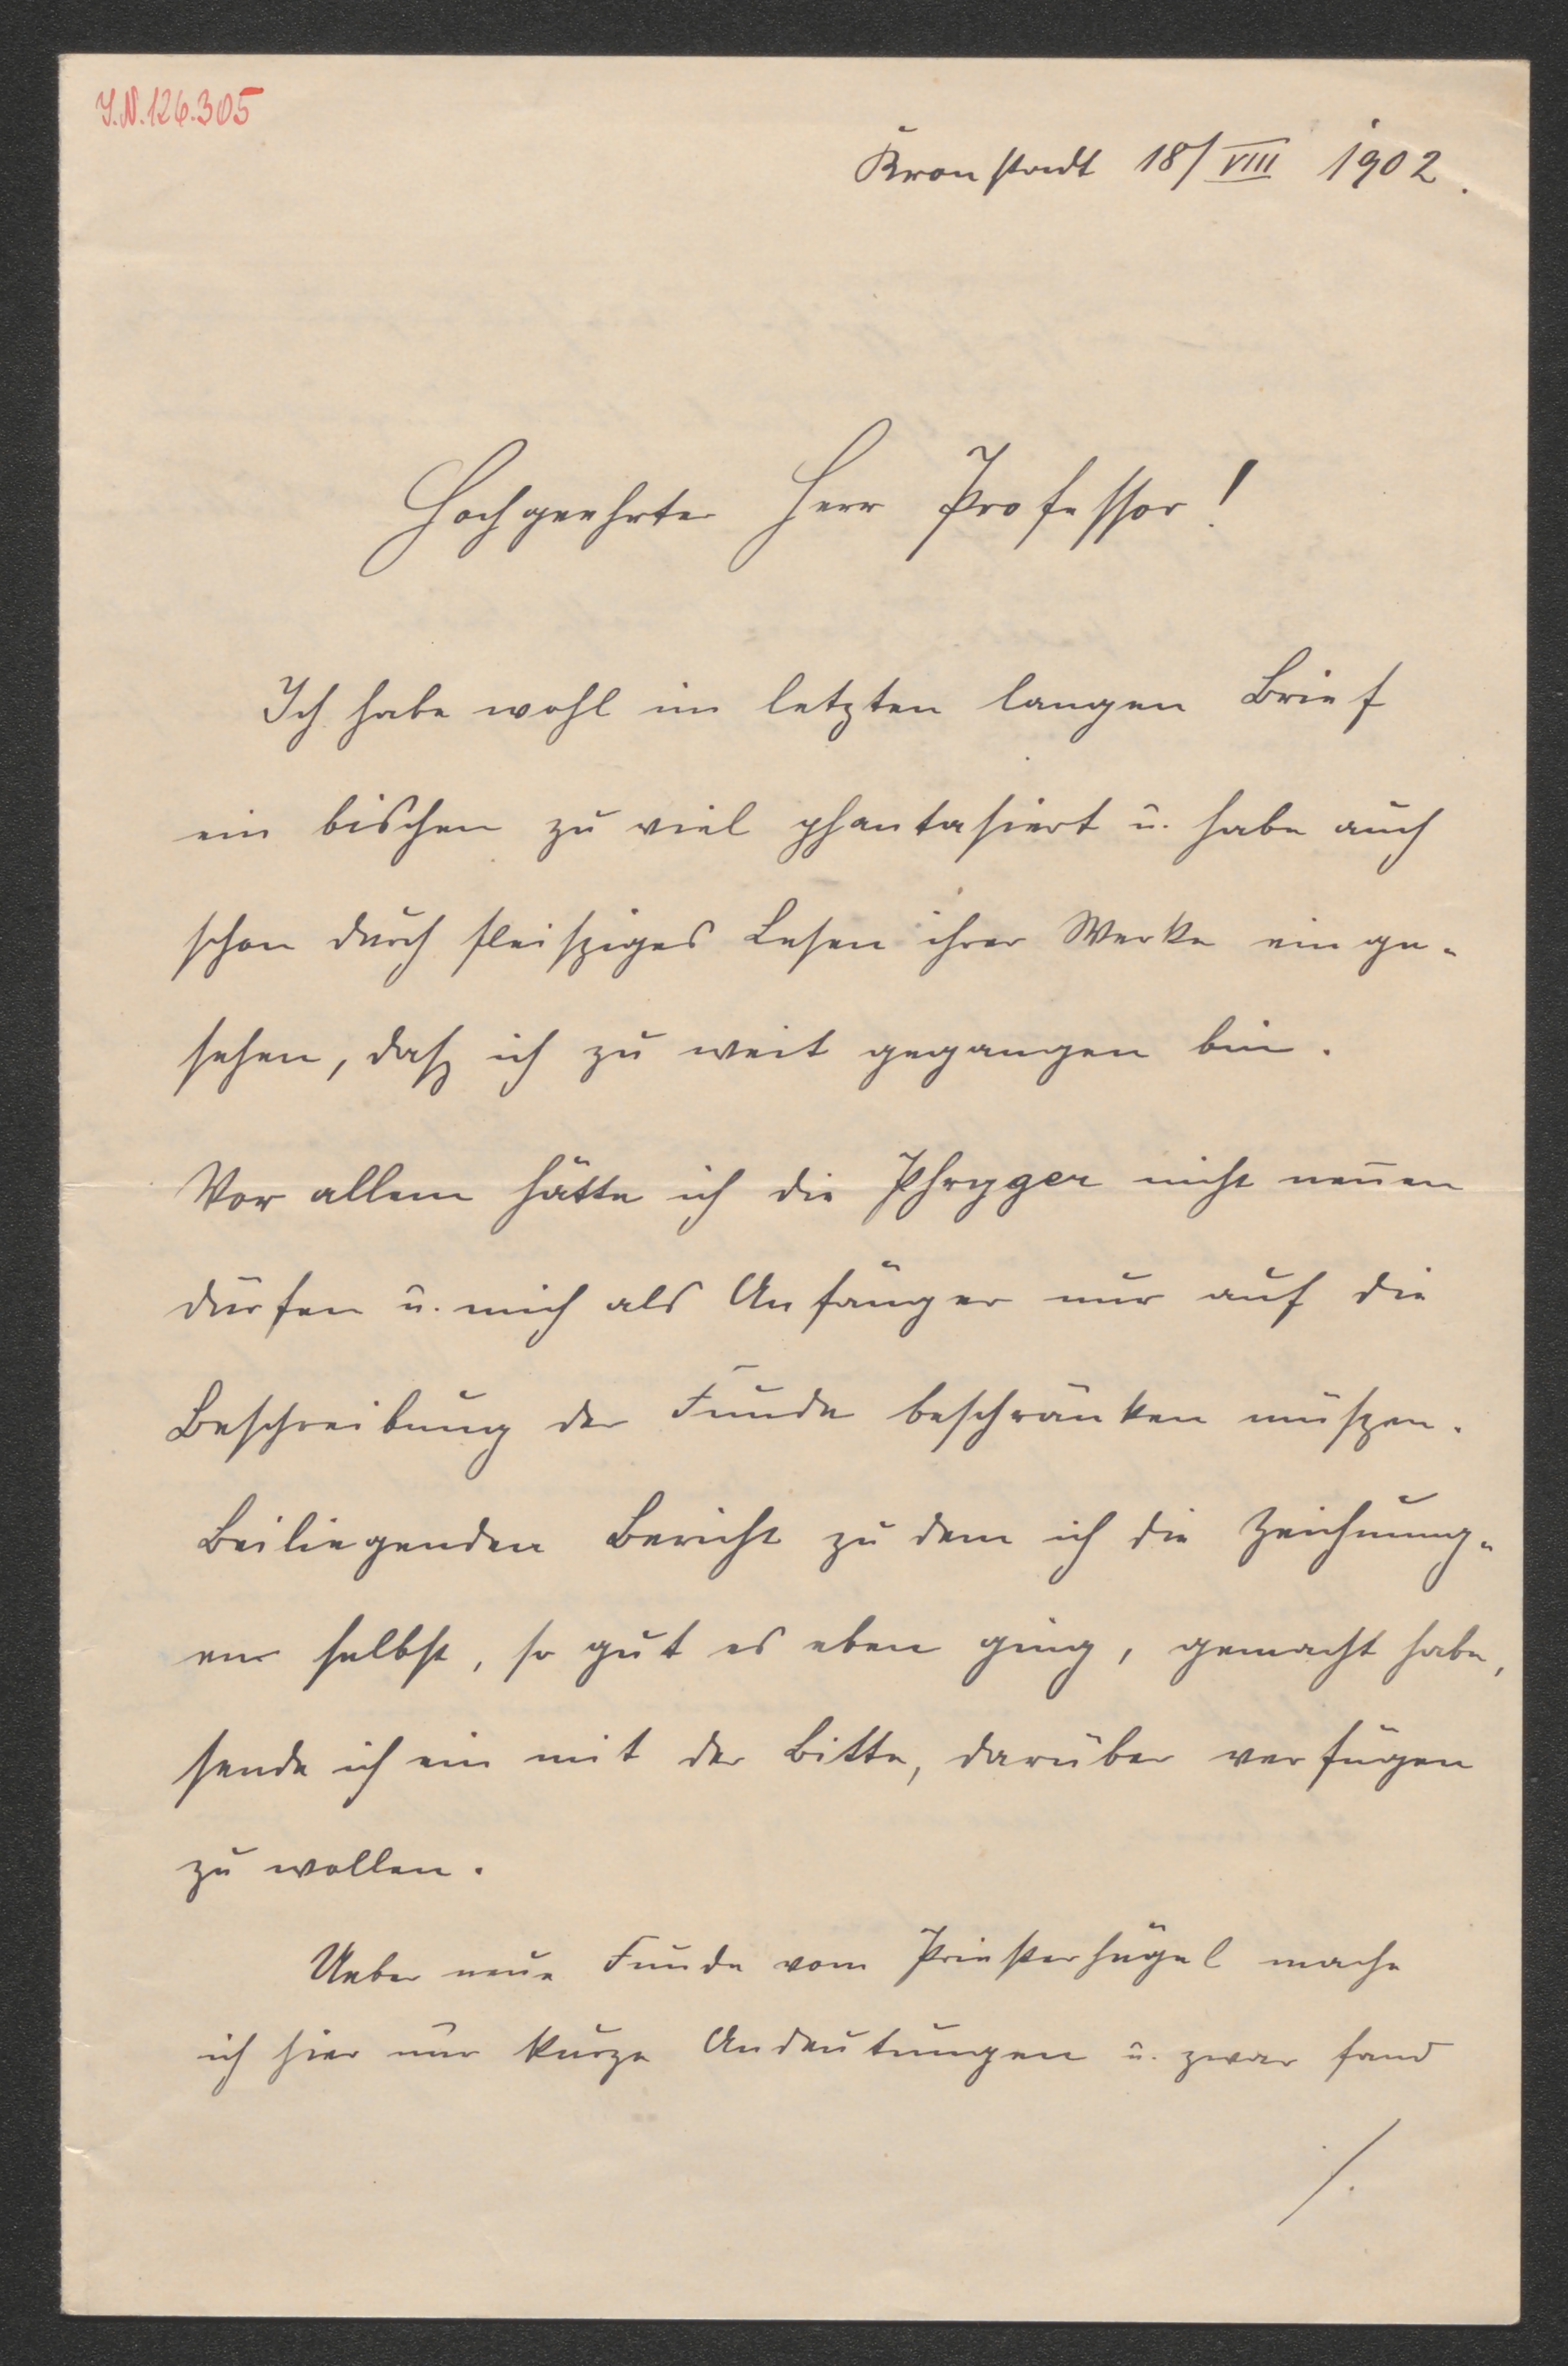 J.N. 126.305
Kronstadt 18/VIII 1902.
Hochgeehrter Herr Professor!
Ich habe wohl im letzten langen Brief
ein bischen zu viel phantasiert u. habe auch
schon durch fleisziges Lesen ihrer Werke einge-
sehen, dasz ich zu weit gegangen bin.
Vor allem hätte ich die Phryger nicht nen̄en
dürfen u. mich als Anfänger nur auf die
Beschreibung der Funde beschränken müszen.
Beiliegenden Bericht zu dem ich die Zeichnung-
en selbst, so gut es eben ging, gemacht habe,
sende ich ein mit der Bitte, darüber verfügen
zu wollen.
Ueber neue Funde vom Priesterhügel mache
ich hier nur kurze Andeutungen u. zwar fand
./.